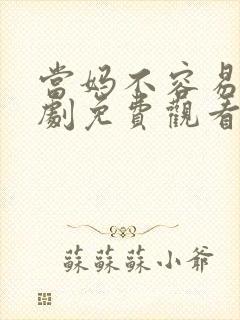 當妈不容易
劇免費觀看
蘇蘇蘇小爺